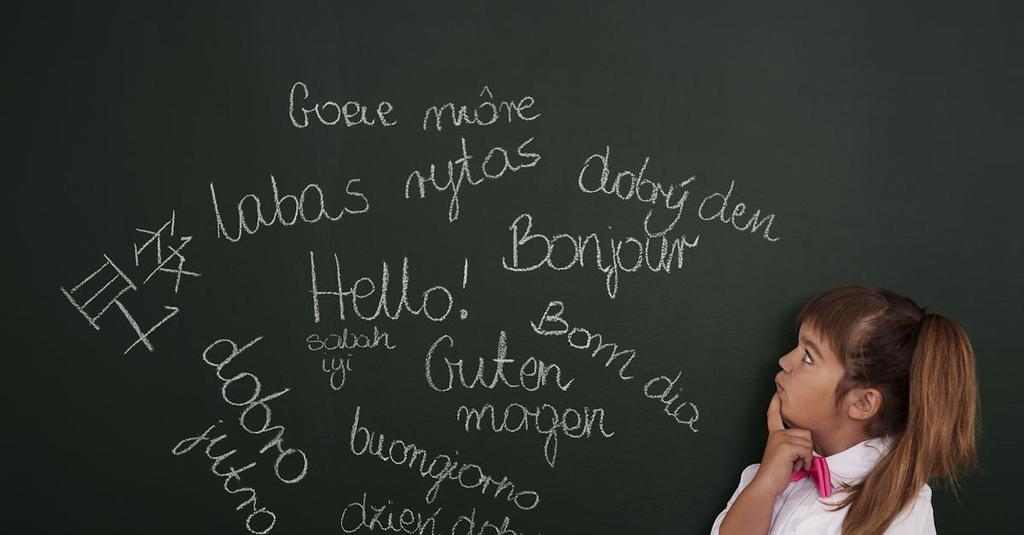 Goeie môre
labas rytas
dobrý den
早安
Bonjour
Hello!
sabah
iyi
Guten
morgen
Bom dia
dobro
jutro
buongiorno
dzień dob